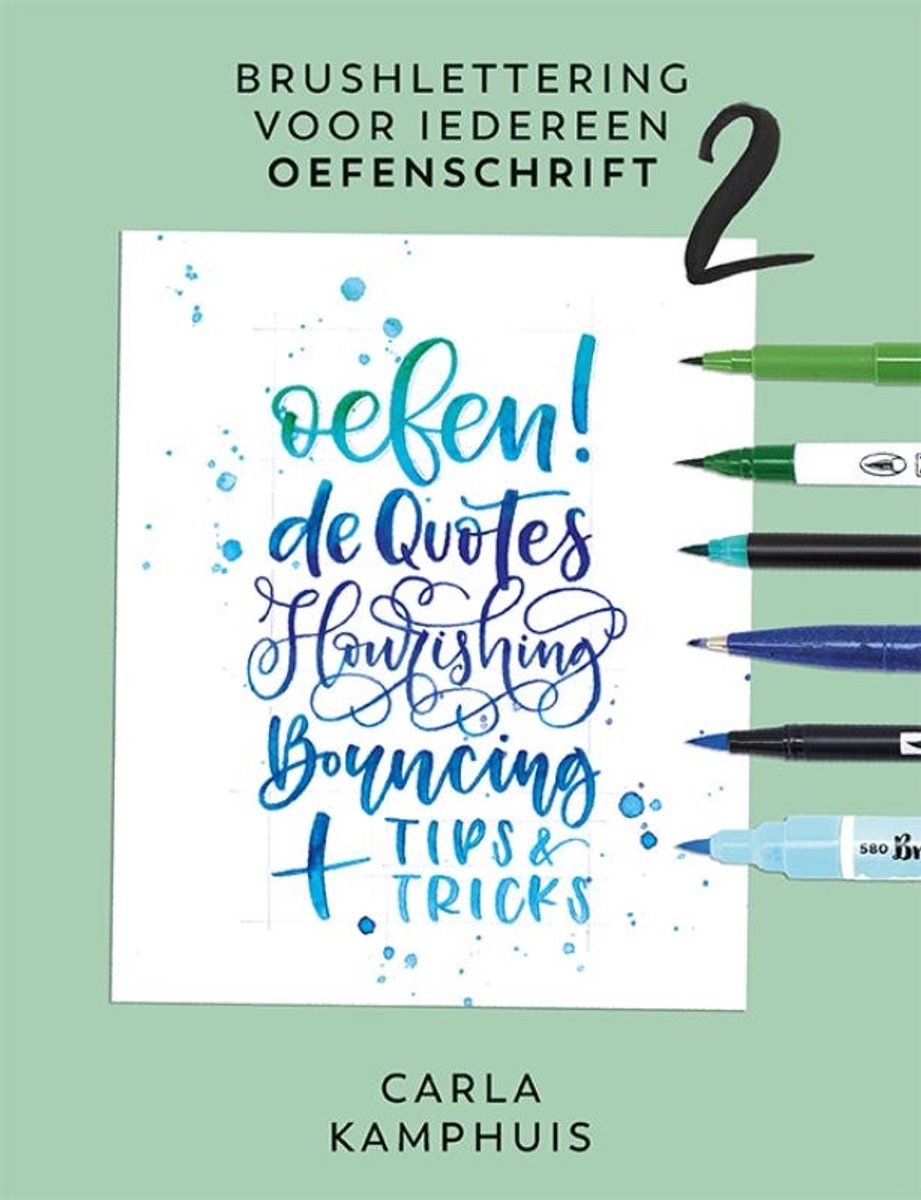 BRUSHLETTERING
VOOR IEDEREEN
OEFENSCHRIFT 2
oefen!
de Quotes
Flourishing
Bouncing
+ TIPS &
TRICKS
580
CARLA
KAMPHUIS